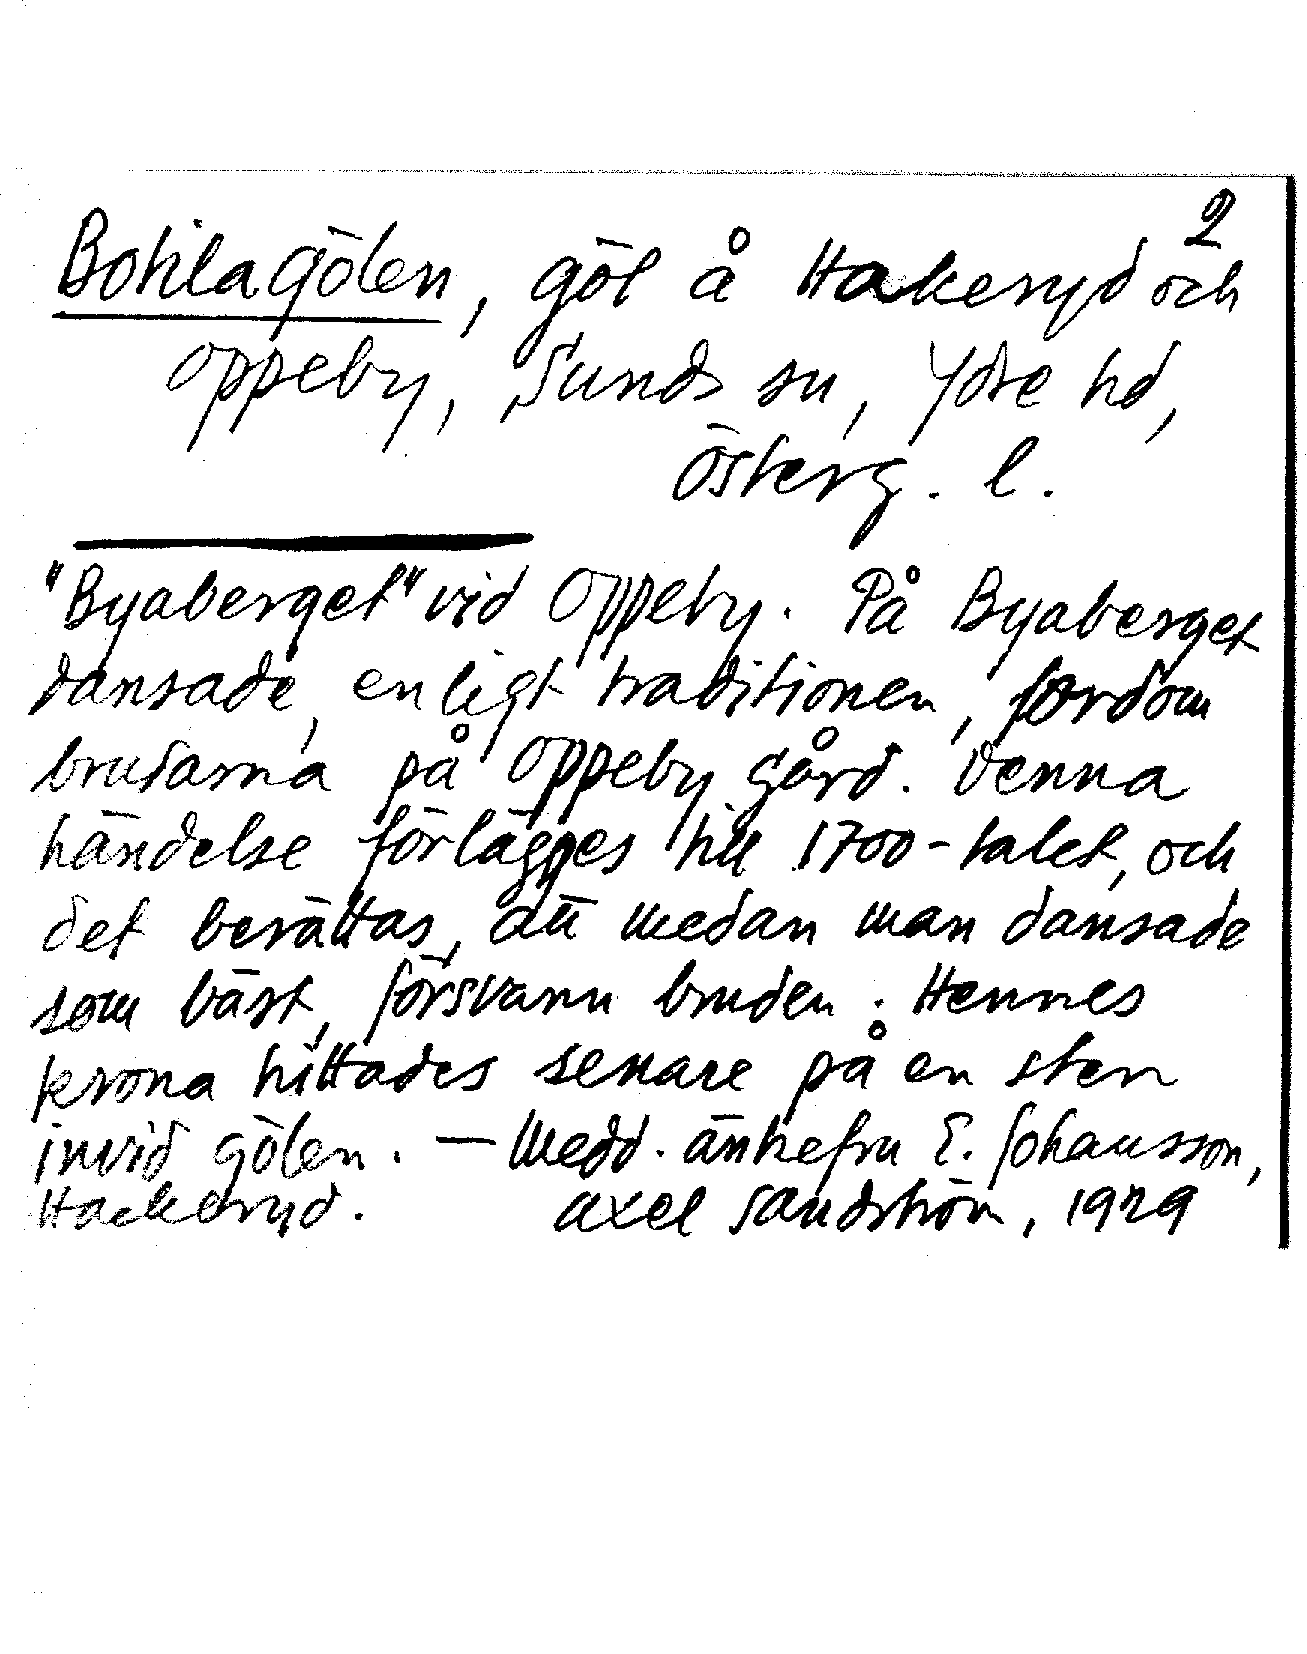 2
Botilagölen, göl å Hakeryd och
Oppeby, Sunds sn, Ydre hd,
Österg. l.
"Byaberget" vid Oppeby. På Byaberget
dansade, enligt traditionen, fordom
brudarna på Oppeby gård. Denna
händelse förlägges till 1700-talet, och
det berättas, att medan man dansade
som bäst, försvann bruden. Hennes
krona hittades senare på en sten
invid gölen. — Medd. änkefru E. Johansson,
Hackeryd. Axel Sandström, 1929